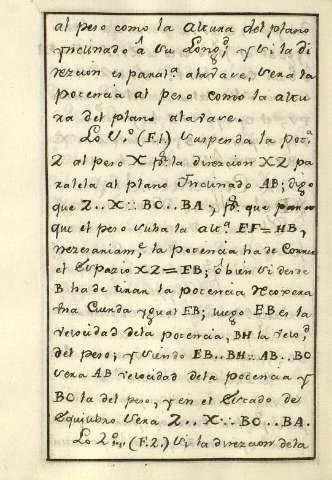 al peso como la altura del plano
Ynclinado â su Long.d y si la di
rezcion es paral.a ala vase, sera la
potencia al peso como la altu
ra del plano ala vase.
Lo 1.o (F.1.) suspenda la pot.a
Z al peso X p.r la direzcion XZ pa
ralela al plano Ynclinado AB; digo
que Z..X::BO..BA., p.r que para
que el peso suba la alt.a EF=HB,
nezesariam.te la potencia ha de correr
el Espazio XZ=EB; ô bien si desde
B ha de tirar la potencia recojera
Una Cuerda ygual EB; luego EB es la
velocidad dela potencia, BH la velo.d
del peso; y siendo EB..BH::AB..BO
sera AB velocidad dela potencia y
BO la del peso, y en el Estado de
Equilibrio sera Z..X::BO..BA.
Lo 2.o (F.2.) si la direzcion dela